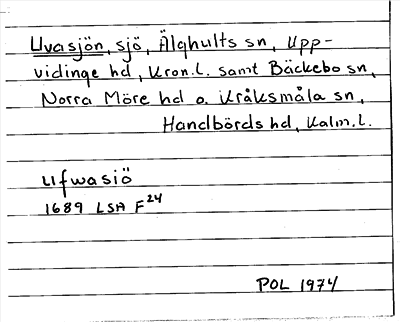 Uvasjön, sjö, Älghults sn, Upp-
vidinge hd, Kron.l. samt Bäckebo sn,
Norra Möre hd o. Kråksmåla sn,
Handbörds hd, Kalm.l.
Ufwasiö
1689 LSA F24
POL 1974